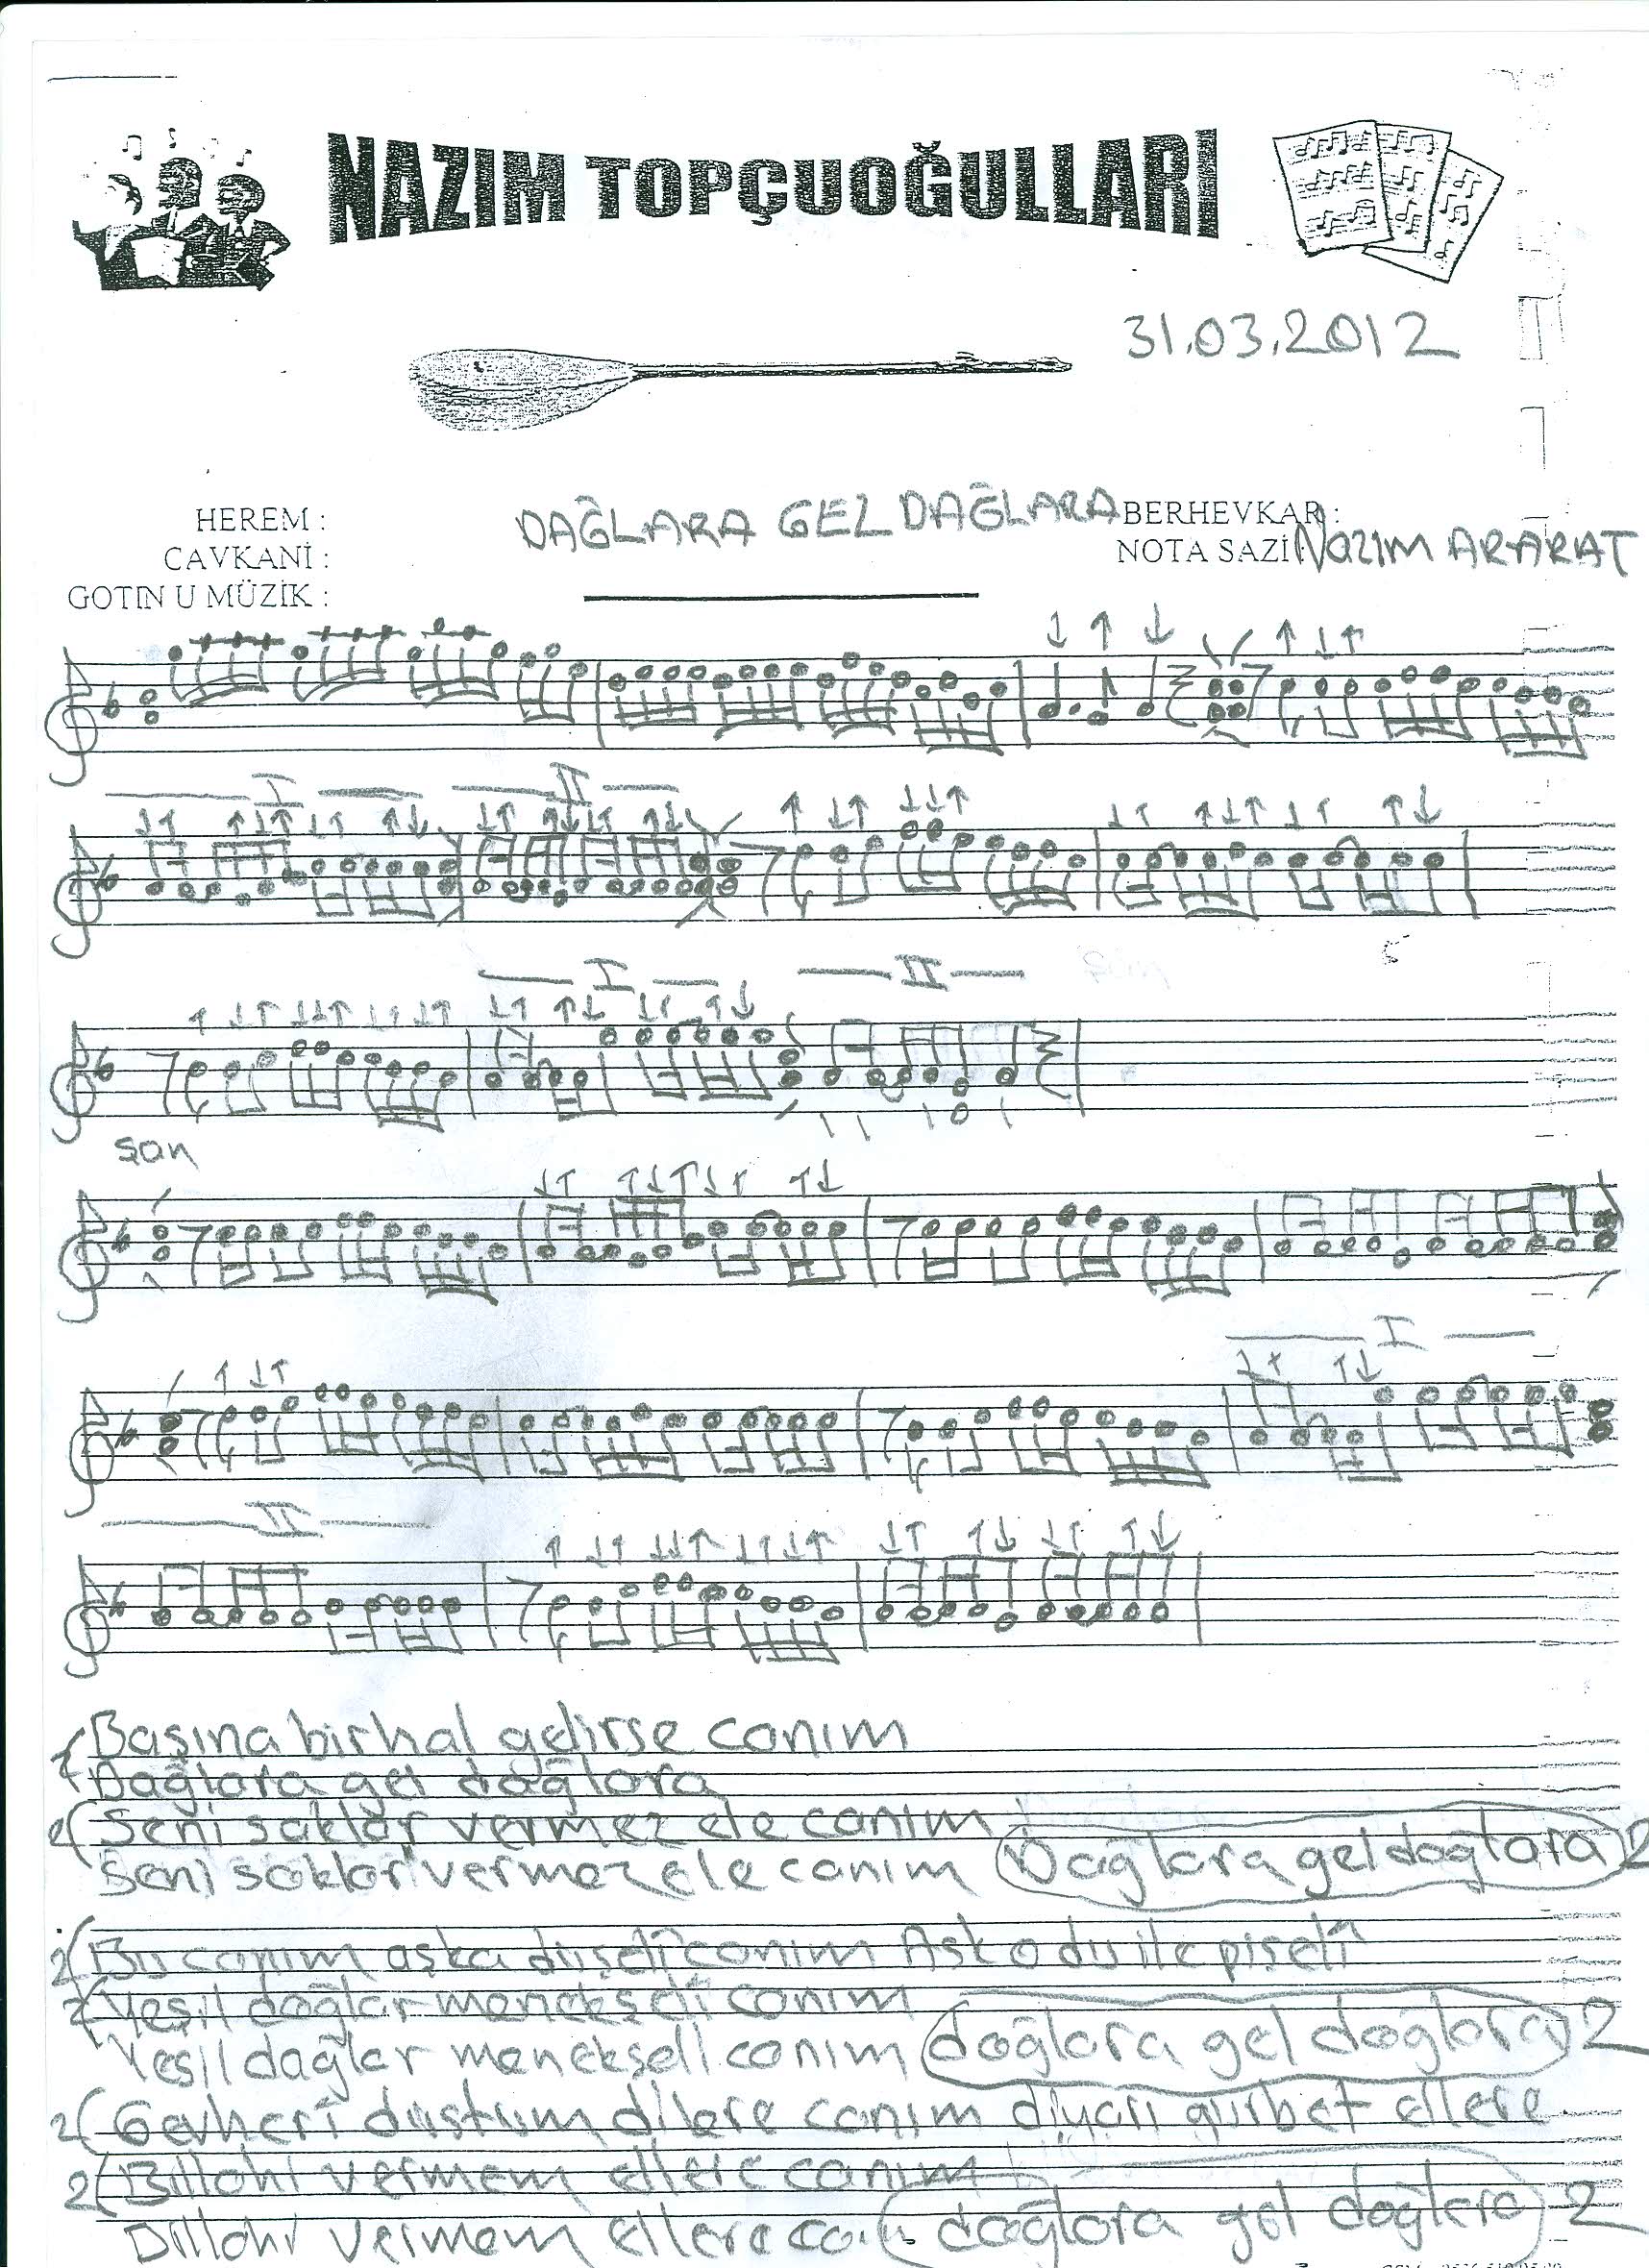 NAZIM TOPÇUOĞULLARI
31.03.2012
HEREM :
DAĞLARA GEL DAĞLARA
BERHEVKAR :
CAVKANİ :
NOTA SAZİ : NAZIM ARARAT
GOTIN U MÜZİK :
I II
I II
şan
I
II
Başına birhal gelirse canım
Dağlara gel dağlara
Seni saklar vermez ele canım
Seni saklar vermez ele canım (Dağlara gel dağlara) 2
2( Bu canım aşka düşdî canım Aşk odu ile pişdî
2( Yeşil dağlar menekşelî canım
Yeşil dağlar menekşeli canım (dağlara gel dağlara) 2
2( Gevherî düştüm dilere canım diyarı gurbet ellere
2( Billahi vermem ellere canım
Billahi vermem ellere (dağlara gel dağlara) 2